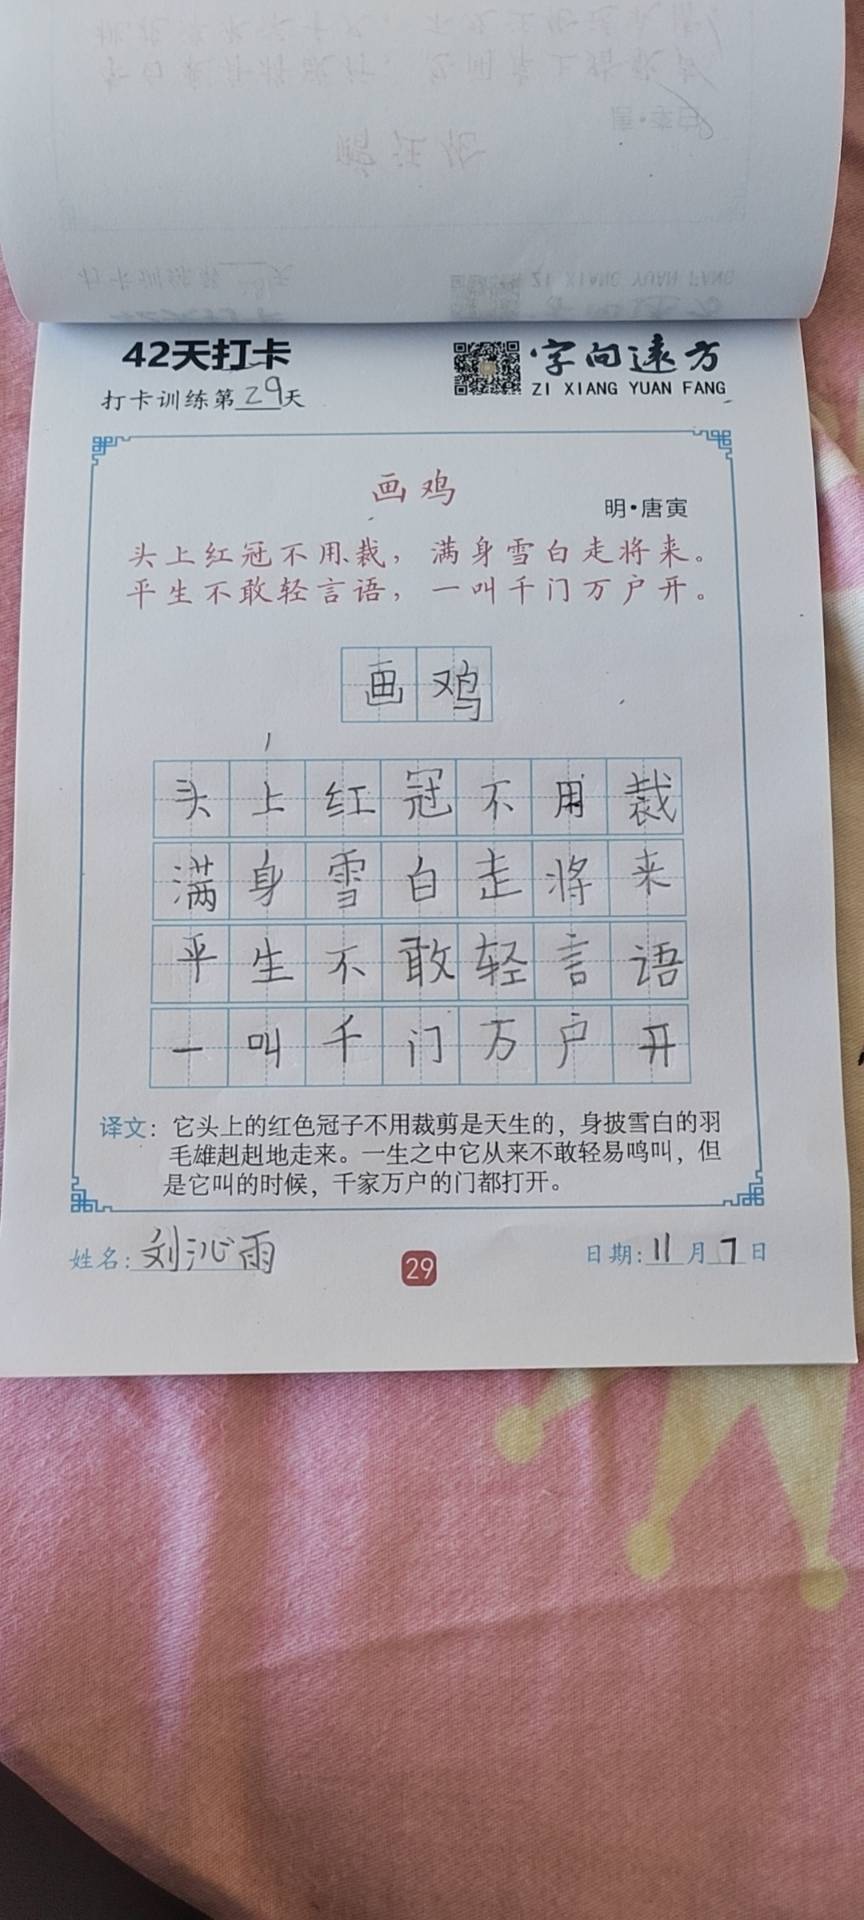 42天打卡
字向远方
ZI XIANG YUAN FANG
打卡训练第29天
画鸡
明·唐寅
头上红冠不用裁，满身雪白走将来。
平生不敢轻言语，一叫千门万户开。
画鸡
头上红冠不用裁
满身雪白走将来
平生不敢轻言语
一叫千门万户开
译文：它头上的红色冠子不用裁剪是天生的，身披雪白的羽
毛雄赳赳地走来。一生之中它从来不敢轻易鸣叫，但
是它叫的时候，千家万户的门都打开。
姓名：刘沁雨
29
日期：11月7日